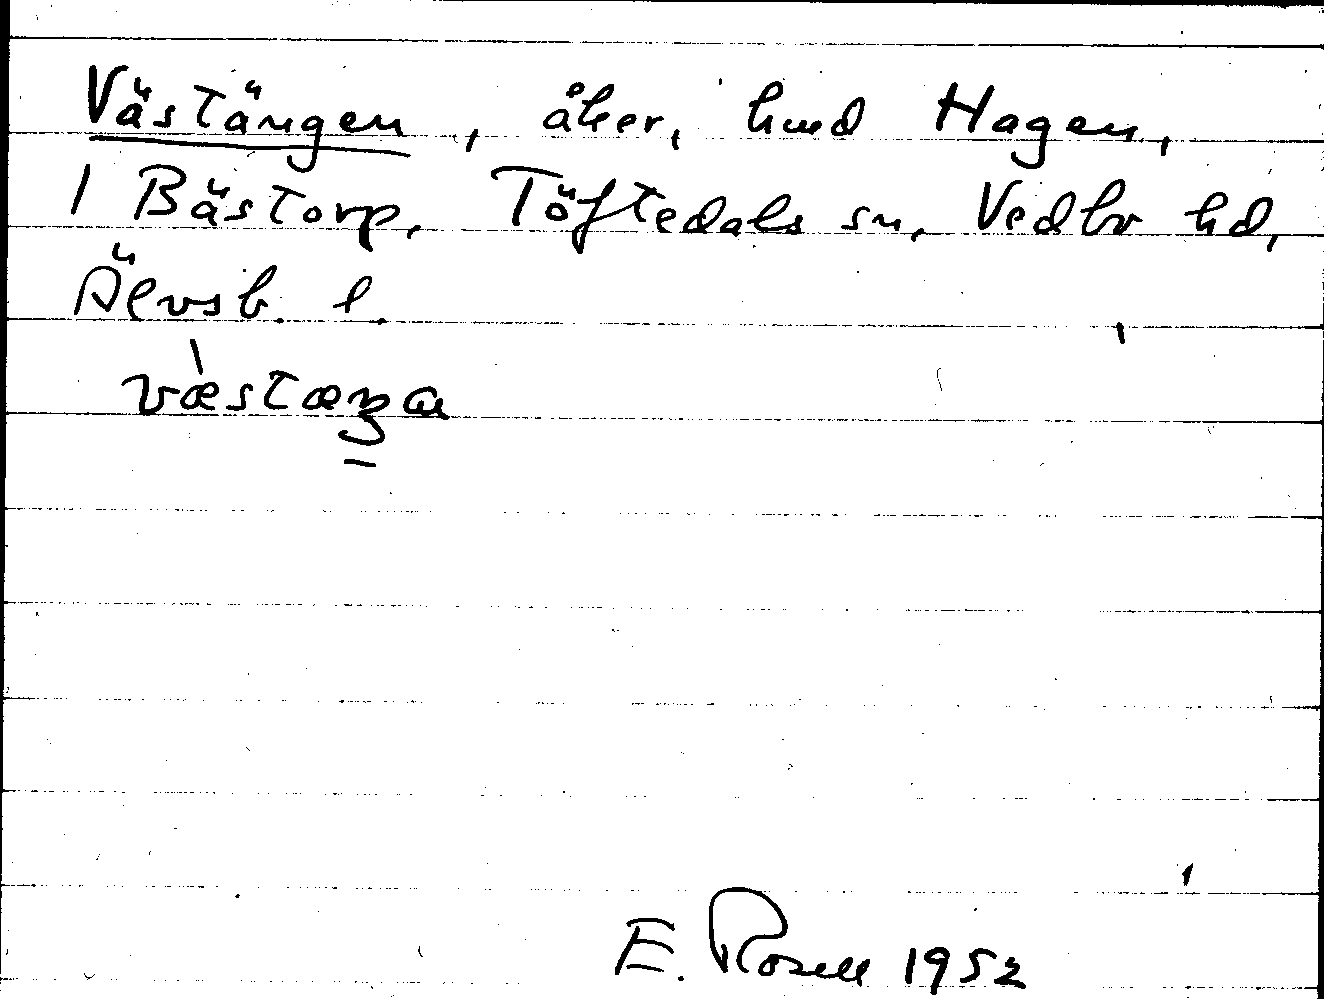 Västängen, åker, hmd Hagen,
1 Bästorp, Töftedals sn, Vedbo hd,
Älvsb. l.
vɶ̀stɶŋa
E. Rosell 1952